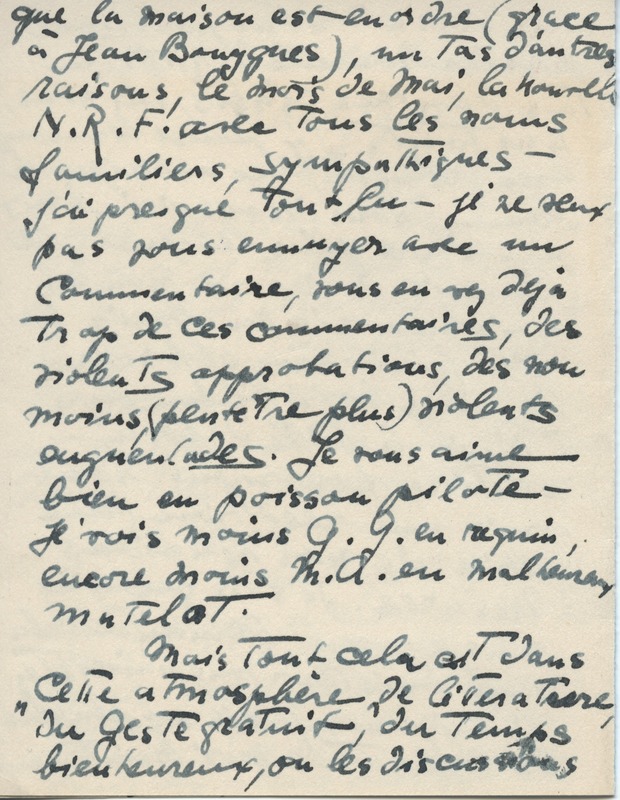 que la maison est en ordre (grace
à Jean Bouygues), un tas d'autres
raisons, le mois de Mai, la Nouvelle
N.R.F. avec tous les noms
familiers, sympathiques —
j'ai presque tout lu — je ne veux
pas vous ennuyer avec un
Commentaire, vous en avez déjà
trop de ces commentaires, des
violents approbations, des non
moins, (peut être plus) violents
engueulades. Je vous aime
bien en poisson pilote —
Je vois moins G. G. en requin,
encore moins M.A. en malheureux
matelot.
Mais tout cela est dans
Cette atmosphère "de literature,
du geste gratuit," du temps
bienheureux, ou les discussions